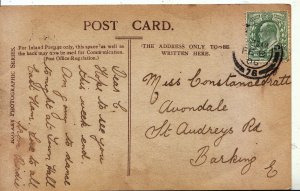 POST CARD.
For Inland Postage only, this space, as well as the
back may now be used for Communication.
(Post Office Regulation.)
THE ADDRESS ONLY TO BE
WRITTEN HERE.
ROTARY PHOTOGRAPHIC SERIES.
Dear C.
Hope to see you
this week end.
Am going to dance
tonight at Town Hall
East Ham. Love to all
from
Miss Constance Pratt
Avondale
St Audreys Rd
Barking
E
FE
06